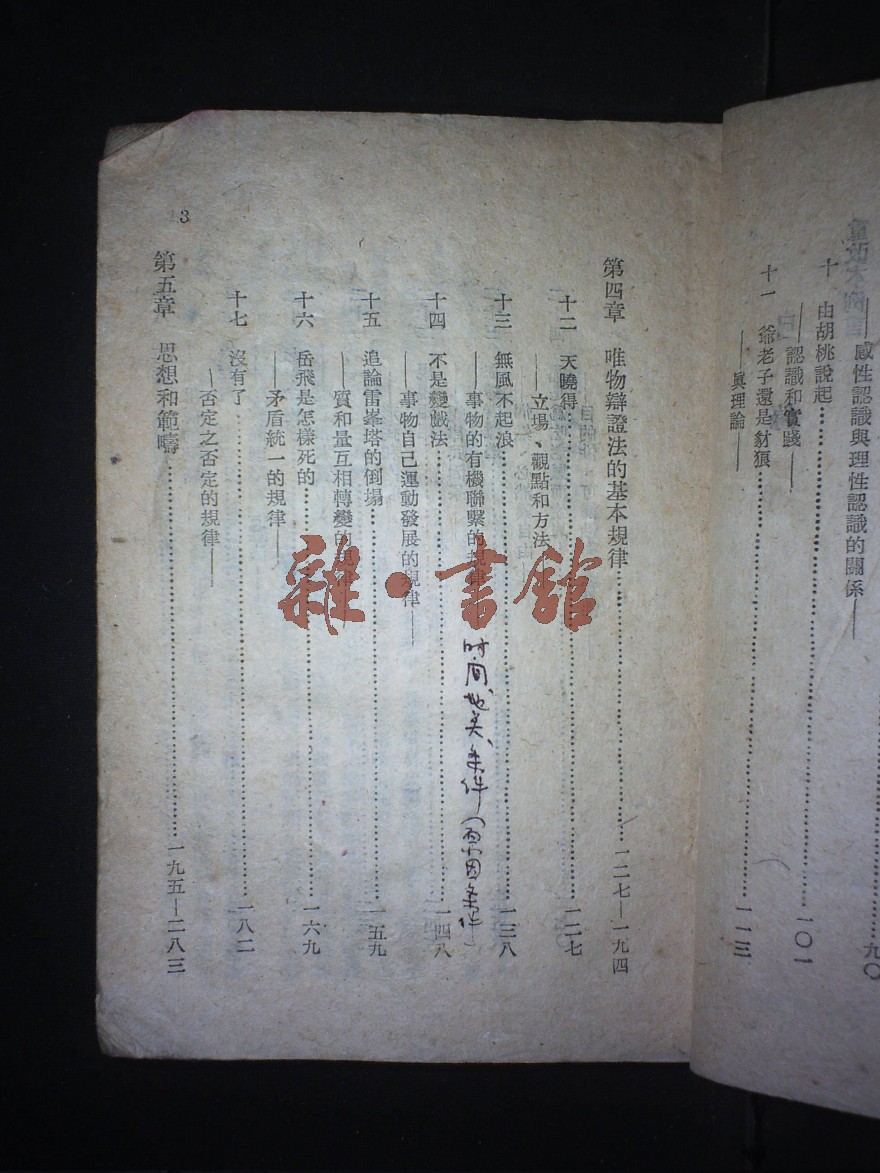 ——感性認識與理性認識的關係——……九〇
十 由胡桃說起……一〇一
——認識和實踐——
十一 爺老子還是豺狼……一一三
——眞理論——
第四章 唯物辯證法的基本規律……一二七—一九四
十二 天曉得……一二七
——立場、觀點和方法
十三 無風不起浪……一三八
——事物的有機聯繫的規律
时间、地点、条件(
条件)
十四 不是變戲法……一四八
——事物自己運動發展的規律——
十五 追論雷峯塔的倒塲……一五九
——質和量互相轉變的
十六 岳飛是怎樣死的……一六九
——矛盾統一的規律——
十七 沒有了……一八二
——否定之否定的規律——
第五章 思想和範疇……一九五—二八三
3
雜·書館